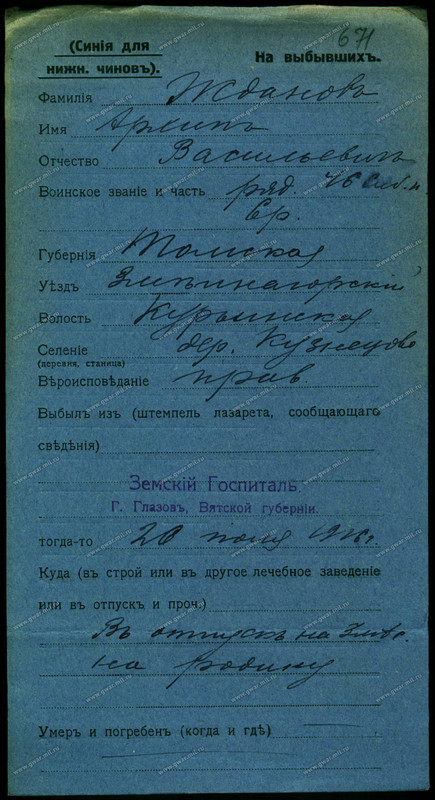 671
(Синія для
нижн. чиновъ).
На выбывшихъ.
Фамилія Ждановъ
Имя Архипъ
Отчество Васильевичъ
Воинское званіе и часть ряд. 46
Губернія Томская
Уѣздъ Змѣиногорскій
Волость Курьинская
Селеніе дер. Кузнецова
(деревня, станица)
Вѣроисповѣданіе прав.
Выбылъ изъ (штемпель лазарета, сообщающаго
свѣдѣнія)
Земскій Госпиталь
Г. Глазовъ, Вятской губерніи.
тогда-то 20 1916 г.
Куда (въ строй или въ другое лечебное заведеніе
или въ отпускъ и проч.)
Въ отпускъ на
на родину
Умеръ и погребенъ (когда и гдѣ)
www.gwar.mil.ru